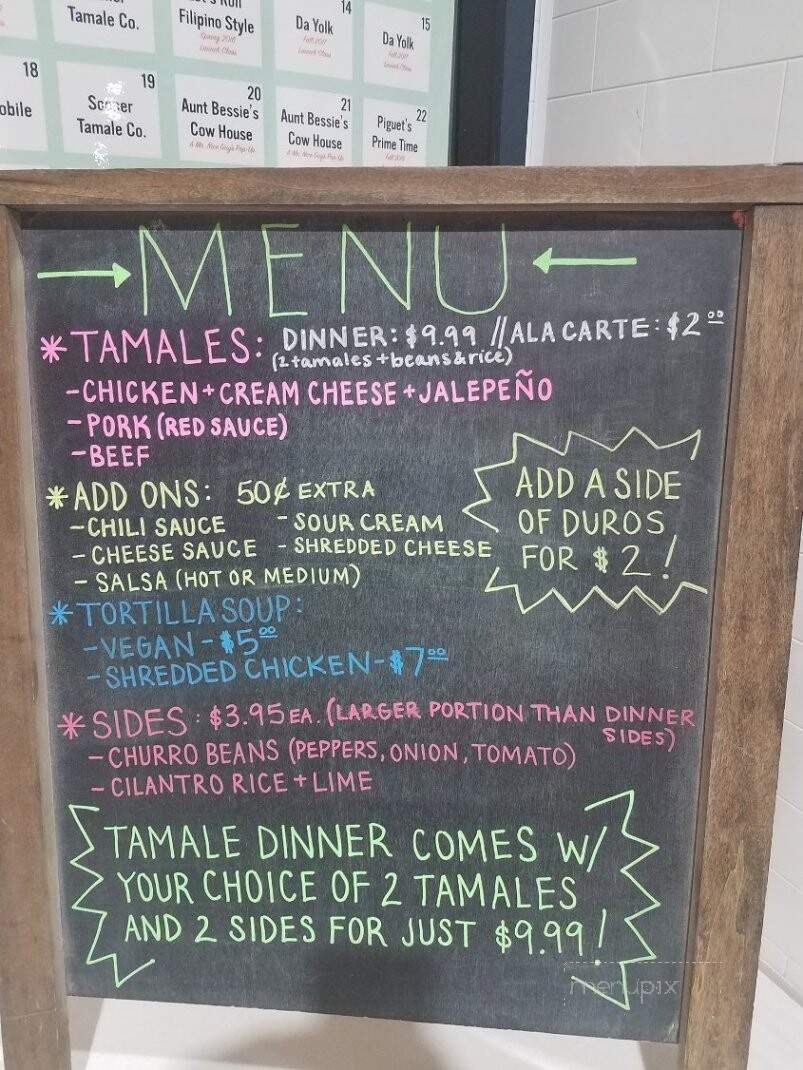 Tamale Co.
Filipino Style
Spring 2016
Launch Class
14
Da Yolk
Fall 2017
Launch Class
15
Da Yolk
Launch Class
18
obile
19
Tamale Co.
20
Aunt Bessie's
Cow House
21
Aunt Bessie's
Cow House
22
Piguet's
Prime Time
MENU
*TAMALES: DINNER: $9.99 // ALA CARTE: $2.00
(2 tamales + beans & rice)
-CHICKEN + CREAM CHEESE + JALEPEÑO
-PORK (RED SAUCE)
-BEEF
*ADD ONS: 50¢ EXTRA
-CHILI SAUCE -SOUR CREAM
-CHEESE SAUCE -SHREDDED CHEESE
-SALSA (HOT OR MEDIUM)
ADD A SIDE
OF DUROS
FOR $2!
*TORTILLA SOUP:
-VEGAN - $5.00
-SHREDDED CHICKEN - $7.00
*SIDES: $3.95 EA. (LARGER PORTION THAN DINNER
SIDES)
-CHURRO BEANS (PEPPERS, ONION, TOMATO)
-CILANTRO RICE + LIME
TAMALE DINNER COMES W/
YOUR CHOICE OF 2 TAMALES
AND 2 SIDES FOR JUST $9.99!
menupix